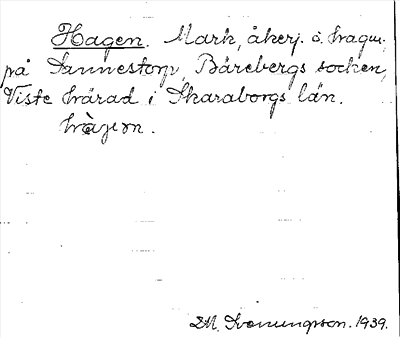 Hagen. Mark, åkerj. o. hagm.
på Jannestorp, Bärebergs socken,
Viste härad i Skaraborgs län.
M. Svenungsson. 1939.